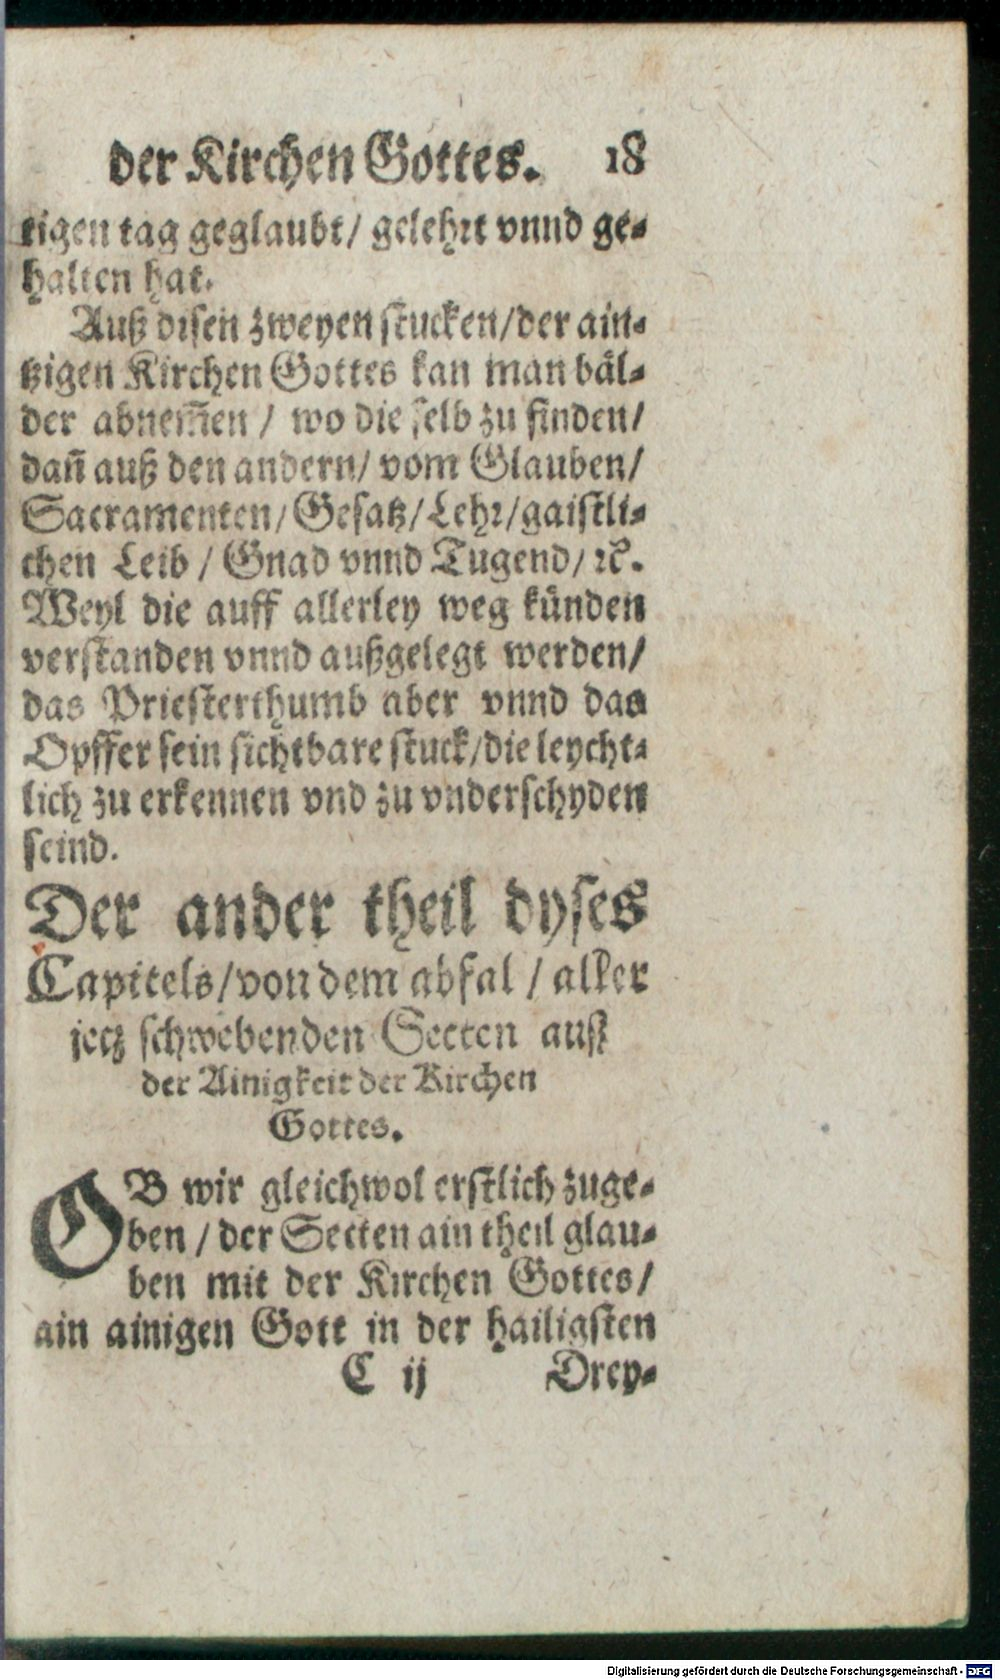 der Kirchen Gottes. 18
tigen tag geglaubt/ gelehrt vnnd ge-
halten hat.
Auß disen zweyen stucken/der ain-
tzigen Kirchen Gottes kan man bäl-
der abnem̃en / wo die selb zu finden/
dañ auß den andern/ vom Glauben/
Sacramenten/Gesatz/Lehr/gaistli-
chen Leib / Gnad vnnd Tugend/ ꝛc.
Weyl die auff allerley weg künden
verstanden vnnd außgelegt werden/
das Priesterthumb aber vnnd das
Opffer sein sichtbare stuck/die leycht-
lich zu erkennen vnd zu vnderschyden
seind.
Der ander theil dyses
Capitels/von dem abfal / aller
jetz schwebenden Secten auß
der Ainigkeit der Kirchen
Gottes.
OB wir gleichwol erstlich zuge-
ben / der Secten ain theil glau-
ben mit der Kirchen Gottes/
ain ainigen Gott in der hailigsten
C ij Drey-
Digitalisierung gefördert durch die Deutsche Forschungsgemeinschaft - DFG